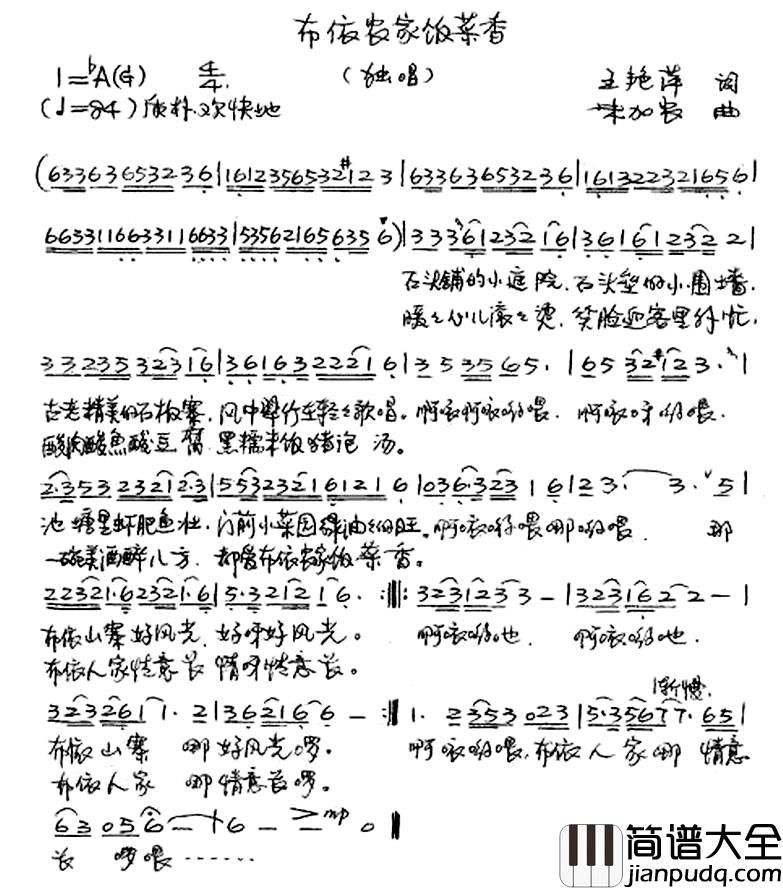 布依农家饭菜香
1=♭A(G) 4/4 (独唱) 王艳萍 词
(♩=84) 质朴.欢快地 朱加农 曲
(6336365323 6|16123565321#23|6336365323 6|161322321656|
66331166331166 33|5356216563 5 6)|3 3 3612321 6|3616123 2 2|
石头铺的小庭院,石头垒的小围墙,
暖暖心儿滚滚烫,笑脸迎客里外忙,
332353231 6|3616322216|3 5 35 6 5.|6 5 32#12 3.|
古老精美的石板寨,风中翠竹在轻轻歌唱。啊依啊依哟喂,啊依呀哟喂。
酸肉酸鱼酸豆腐,黑糯米饭猪泡汤。
2·353232 12·3|55323216121 6|036·323 1 6|2 3. 3. 5|
池塘里虾肥鱼壮,门前小菜园绿油油的旺。啊依哟喂哪哟喂 那
一碗美酒醉八方,都爱布依农家饭菜香。
22321·62321·6|5·321216.:‖:32312 3 3 -|3231622 -|
布依山寨好风光,好呀好风光。啊依哟也. 啊依哟也.
布依人家情意长 情呀情意长。
渐慢.
3232611. 2|3621 6 6 -:‖1. 2353 023|5·35677. 65|
布依山寨 哪好风光啰。啊依哟喂,布依人家哪 情意
布依人家 哪情意长啰。
6 3 05 6 - 6 - > - mp 0‖
长 啰喂……
简谱大全
jianpudq.com